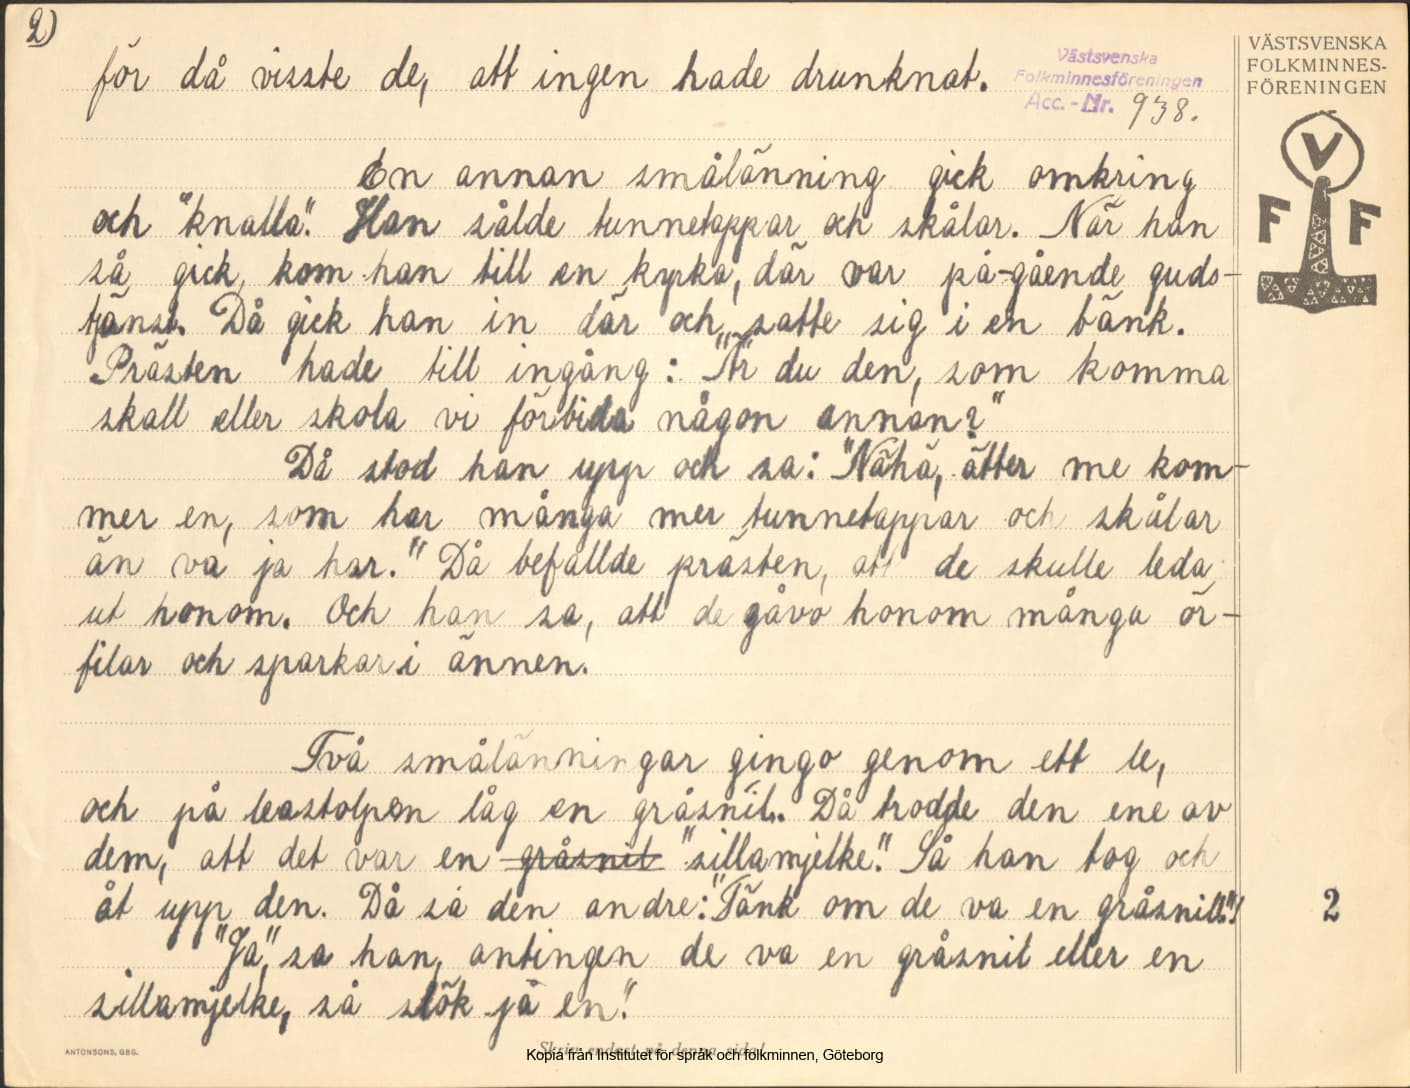 2)
för då visste de, att ingen hade drunknat.
Västsvenska
Folkminnesföreningen
Acc. - Nr. 938.
VÄSTSVENSKA
FOLKMINNES-
FÖRENINGEN
V
F F
En annan smålänning gick omkring
och "knalla". Han sålde tunnetappar och skålar. När han
så gick, kom han till en kyrka, där var på-gående guds-
tjänst. Då gick han in där och satte sig i en bänk.
Prästen hade till ingång: "Är du den, som komma
skall eller skola vi förbida någon annan?"
Då stod han upp och sa: "Nähä, ätter me kom-
mer en, som har många mer tunnetappar och skålar
än va ja har." Då befallde prästen, att de skulle leda
ut honom. Och han sa, att de gåvo honom många ör-
filar och sparkar i ännen.
Två smålänningar gingo genom ett le,
och på leastolpen låg en gråsnil. Då trodde den ene av
dem, att det var en gråsnil "sillamjelke". Så han tog och
åt upp den. Då sa den andre: "Tänk om de va en gråsnil!"!
2
"Ja", sa han, antingen de va en gråsnil eller en
sillamjelke, så slök jä en".
ANTONSONS, GBG.
Skriv endast på denna sida!
Kopia från Institutet för språk och folkminnen, Göteborg